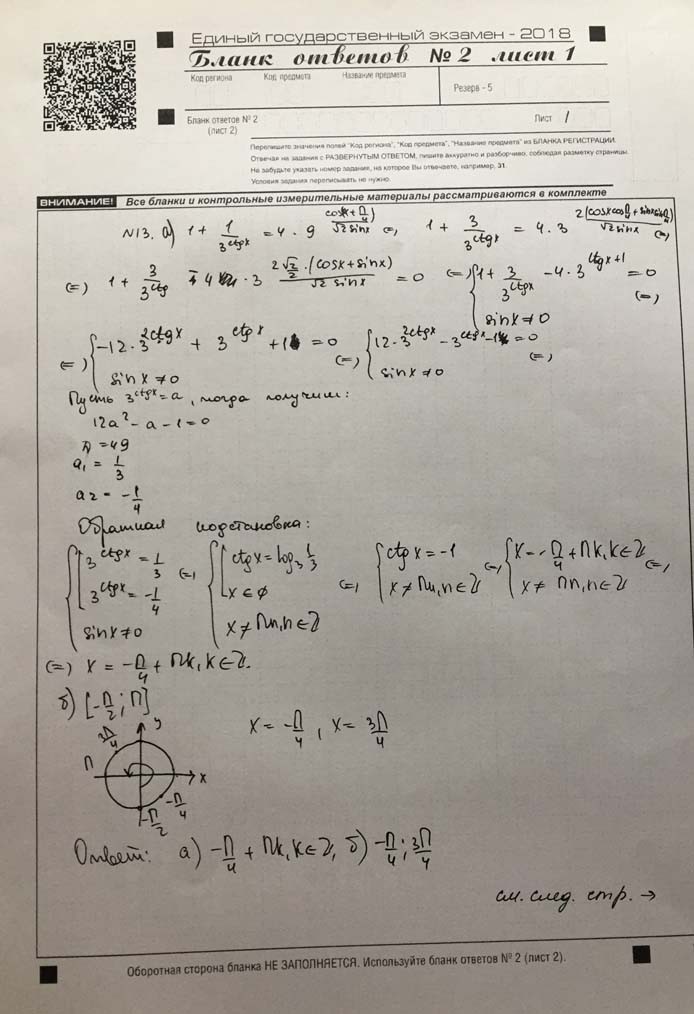 Единый государственный экзамен - 2018
Бланк ответов № 2 лист 1
Код региона Код предмета Название предмета
Резерв - 5
Бланк ответов № 2
(лист 2)
Лист 1
Перепишите значения полей "Код региона", "Код предмета", "Название предмета" из БЛАНКА РЕГИСТРАЦИИ.
Отвечая на задания с РАЗВЕРНУТЫМ ОТВЕТОМ, пишите аккуратно и разборчиво, соблюдая разметку страницы.
Не забудьте указать номер задания, на которое Вы отвечаете, например, 31.
Условия задания переписывать не нужно.
ВНИМАНИЕ! Все бланки и контрольные измерительные материалы рассматриваются в комплекте
N13. а) 1 + 1/3^(ctgx) = 4 · 9^(cos(x + П/4)/(√2 sinx)) (=) 1 + 3/3^(ctgx) = 4 · 3^(2(cosx cos П/4 + sinx sin П/4)/(√2 sinx)) (=)
(=) 1 + 3/3^(ctg) - 4 · 3^(2 √2/2 · (cosx + sinx)/(√2 sinx)) = 0 (=) { 1 + 3/3^(ctgx) - 4 · 3^(ctgx+1) = 0
sinx ≠ 0 (=)
(=) { -12 · 3^(2ctgx) + 3^(ctgx) + 1 = 0 (=) { 12 · 3^(2ctgx) - 3^(ctgx) - 1 = 0 (=)
sinx ≠ 0 sinx ≠ 0
Пусть 3^(ctgx) = a, тогда получим:
12a² - a - 1 = 0
D = 49
a₁ = 1/3
a₂ = -1/4
Обратная подстановка:
{ [ 3^(ctgx) = 1/3 (=) { [ ctgx = log₃ 1/3 (=) { ctgx = -1 (=) { x = -П/4 + Пk, k ∈ Z (=)
3^(ctgx) = -1/4 x ∈ ∅ x ≠ Пn, n ∈ Z x ≠ Пn, n ∈ Z
sinx ≠ 0 x ≠ Пn, n ∈ Z
(=) x = -П/4 + Пk, k ∈ Z.
б) [-П/2; П]
x = -П/4, x = 3П/4
y
3П/4
П
x
-П/4
-П/2
Ответ: а) -П/4 + Пk, k ∈ Z, б) -П/4; 3П/4
см. след. стр. →
Оборотная сторона бланка НЕ ЗАПОЛНЯЕТСЯ. Используйте бланк ответов № 2 (лист 2).